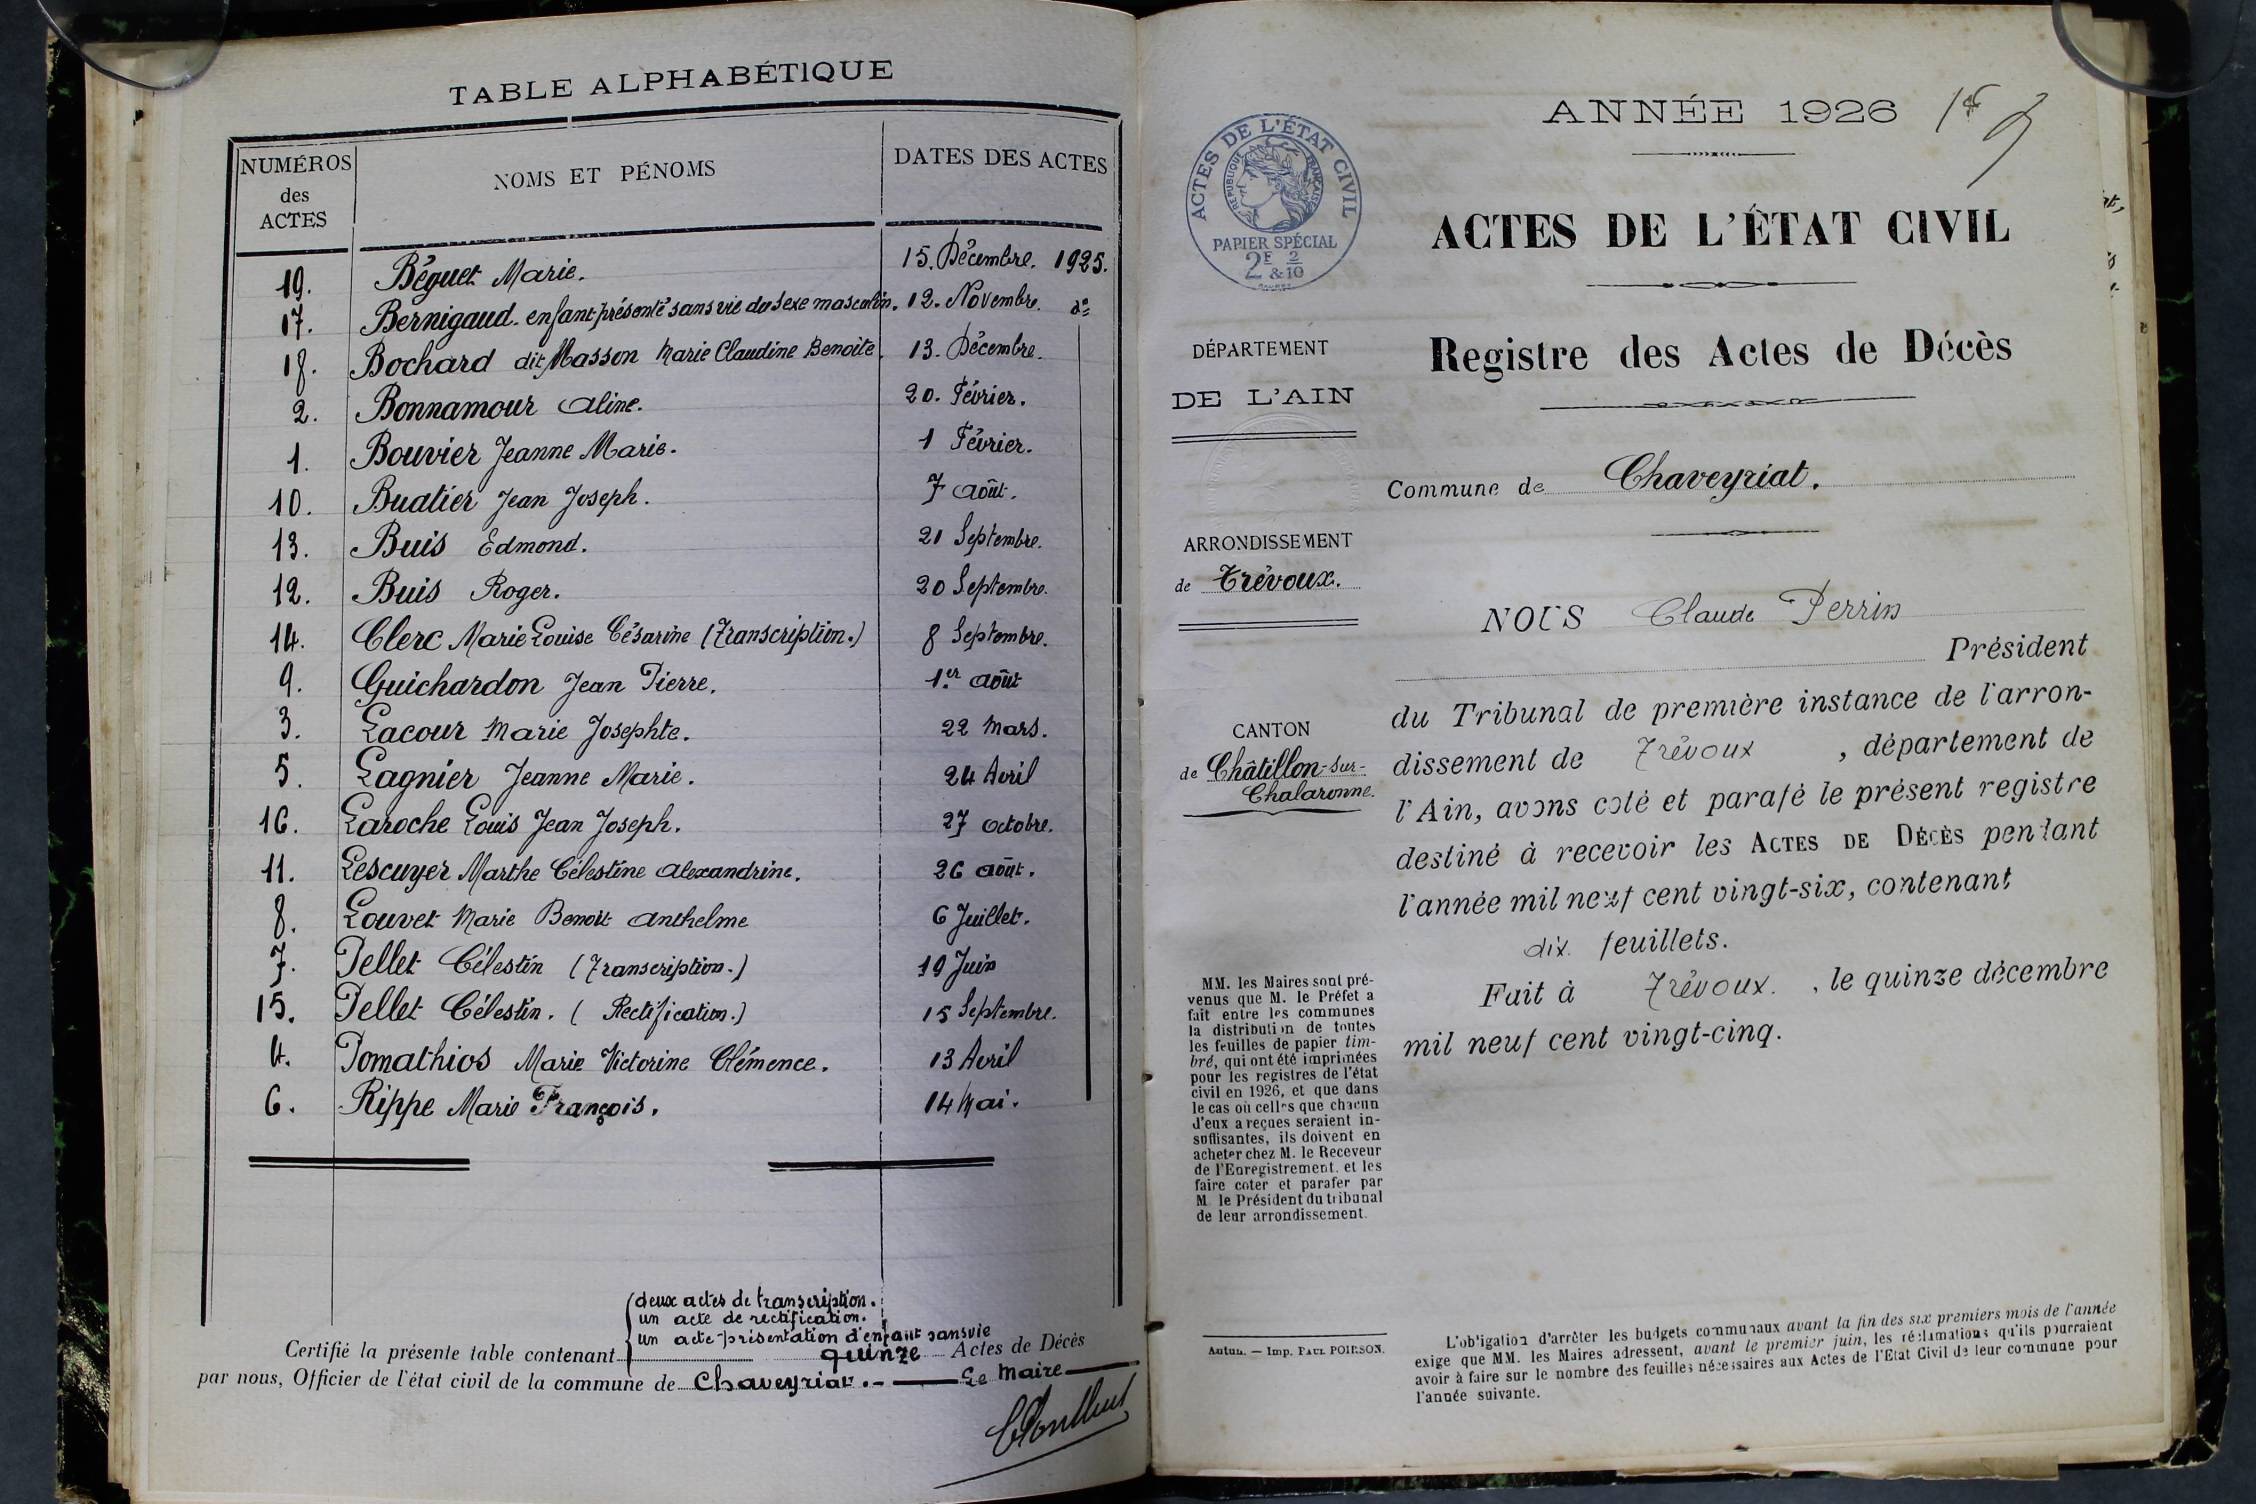 TABLE ALPHABÉTIQUE
NUMÉROS des ACTES NOMS ET PÉNOMS DATES DES ACTES
19. Béguet Marie. 15. Décembre. 1925.
17. Bernigaud. enfant présenté sans vie du sexe masculin. 12. Novembre. do
18. Bochard dit Masson Marie Claudine Benoite. 13. Décembre.
2. Bonnamour Aline. 20. Février.
1. Bouvier Jeanne Marie. 1 Février.
10. Buatier Jean Joseph. 7 Août.
13. Buis Edmond. 21 Septembre.
12. Buis Roger. 20 Septembre.
14. Clerc Marie Louise Césarine (Transcription.) 8 Septembre.
9. Guichardon Jean Pierre. 1.er Août
3. Lacour Marie Josephte. 22 Mars.
5. Lagnier Jeanne Marie. 24 Avril
16. Laroche Louis Jean Joseph. 27 Octobre.
11. Lescuyer Marthe Célestine Alexandrine. 26 Août.
8. Louvet Marie Benoit Anthelme 6 Juillet.
7. Pellet Célestin (Transcription.) 19 Juin
15. Pellet Célestin. (Rectification.) 15 Septembre.
4. Pomathios Marie Victorine Clémence. 13 Avril
6. Rippe Marie François. 14 Mai.
deux actes de transcription.
un acte de rectification.
un acte présentation d'enfant sans vie
Certifié la présente table contenant quinze Actes de Décès
par nous, Officier de l'état civil de la commune de Chaveyriat. Le Maire
ANNÉE 1926
ACTES DE L'ÉTAT CIVIL
RÉPUBLIQUE FRANÇAISE
PAPIER SPÉCIAL
2F & 2/10
ACTES DE L'ÉTAT CIVIL
Registre des Actes de Décès
DÉPARTEMENT
DE L'AIN
Commune de Chaveyriat.
ARRONDISSEMENT
de Trévoux.
CANTON
de Châtillon-sur-
Chalaronne.
NOUS Claude Perrin
Président
du Tribunal de première instance de l'arron-
dissement de Trévoux, département de
l'Ain, avons coté et parafé le présent registre
destiné à recevoir les ACTES DE DÉCÈS pendant
l'année mil neuf cent vingt-six, contenant
dix feuillets.
Fait à Trévoux., le quinze décembre
mil neuf cent vingt-cinq.
MM. les Maires sont pré-
venus que M. le Préfet a
fait entre les communes
la distribution de toutes
les feuilles de papier tim-
bré, qui ont été imprimées
pour les registres de l'état
civil en 1926, et que dans
le cas où celles que chacun
d'eux a reçues seraient in-
suffisantes, ils doivent en
acheter chez M. le Receveur
de l'Enregistrement, et les
faire coter et parafer par
M. le Président du tribunal
de leur arrondissement.
Autun. — Imp. PAUL POIRSON.
L'obligation d'arrêter les budgets communaux avant la fin des six premiers mois de l'année
exige que MM. les Maires adressent, avant le premier juin, les réclamations qu'ils pourraient
avoir à faire sur le nombre des feuilles nécessaires aux Actes de l'Etat Civil de leur commune pour
l'année suivante.